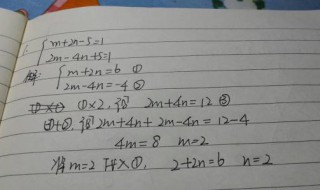 {m+2n-5=1
2m-4n+5=1
解: {m+2n=6 ①
2m-4n=-4 ②
①×2, 得 2m+4n=12 ③
③+②, 得 2m+4n+2m-4n=12-4
4m=8 m=2
将m=2代入①, 2+2n=6 n=2